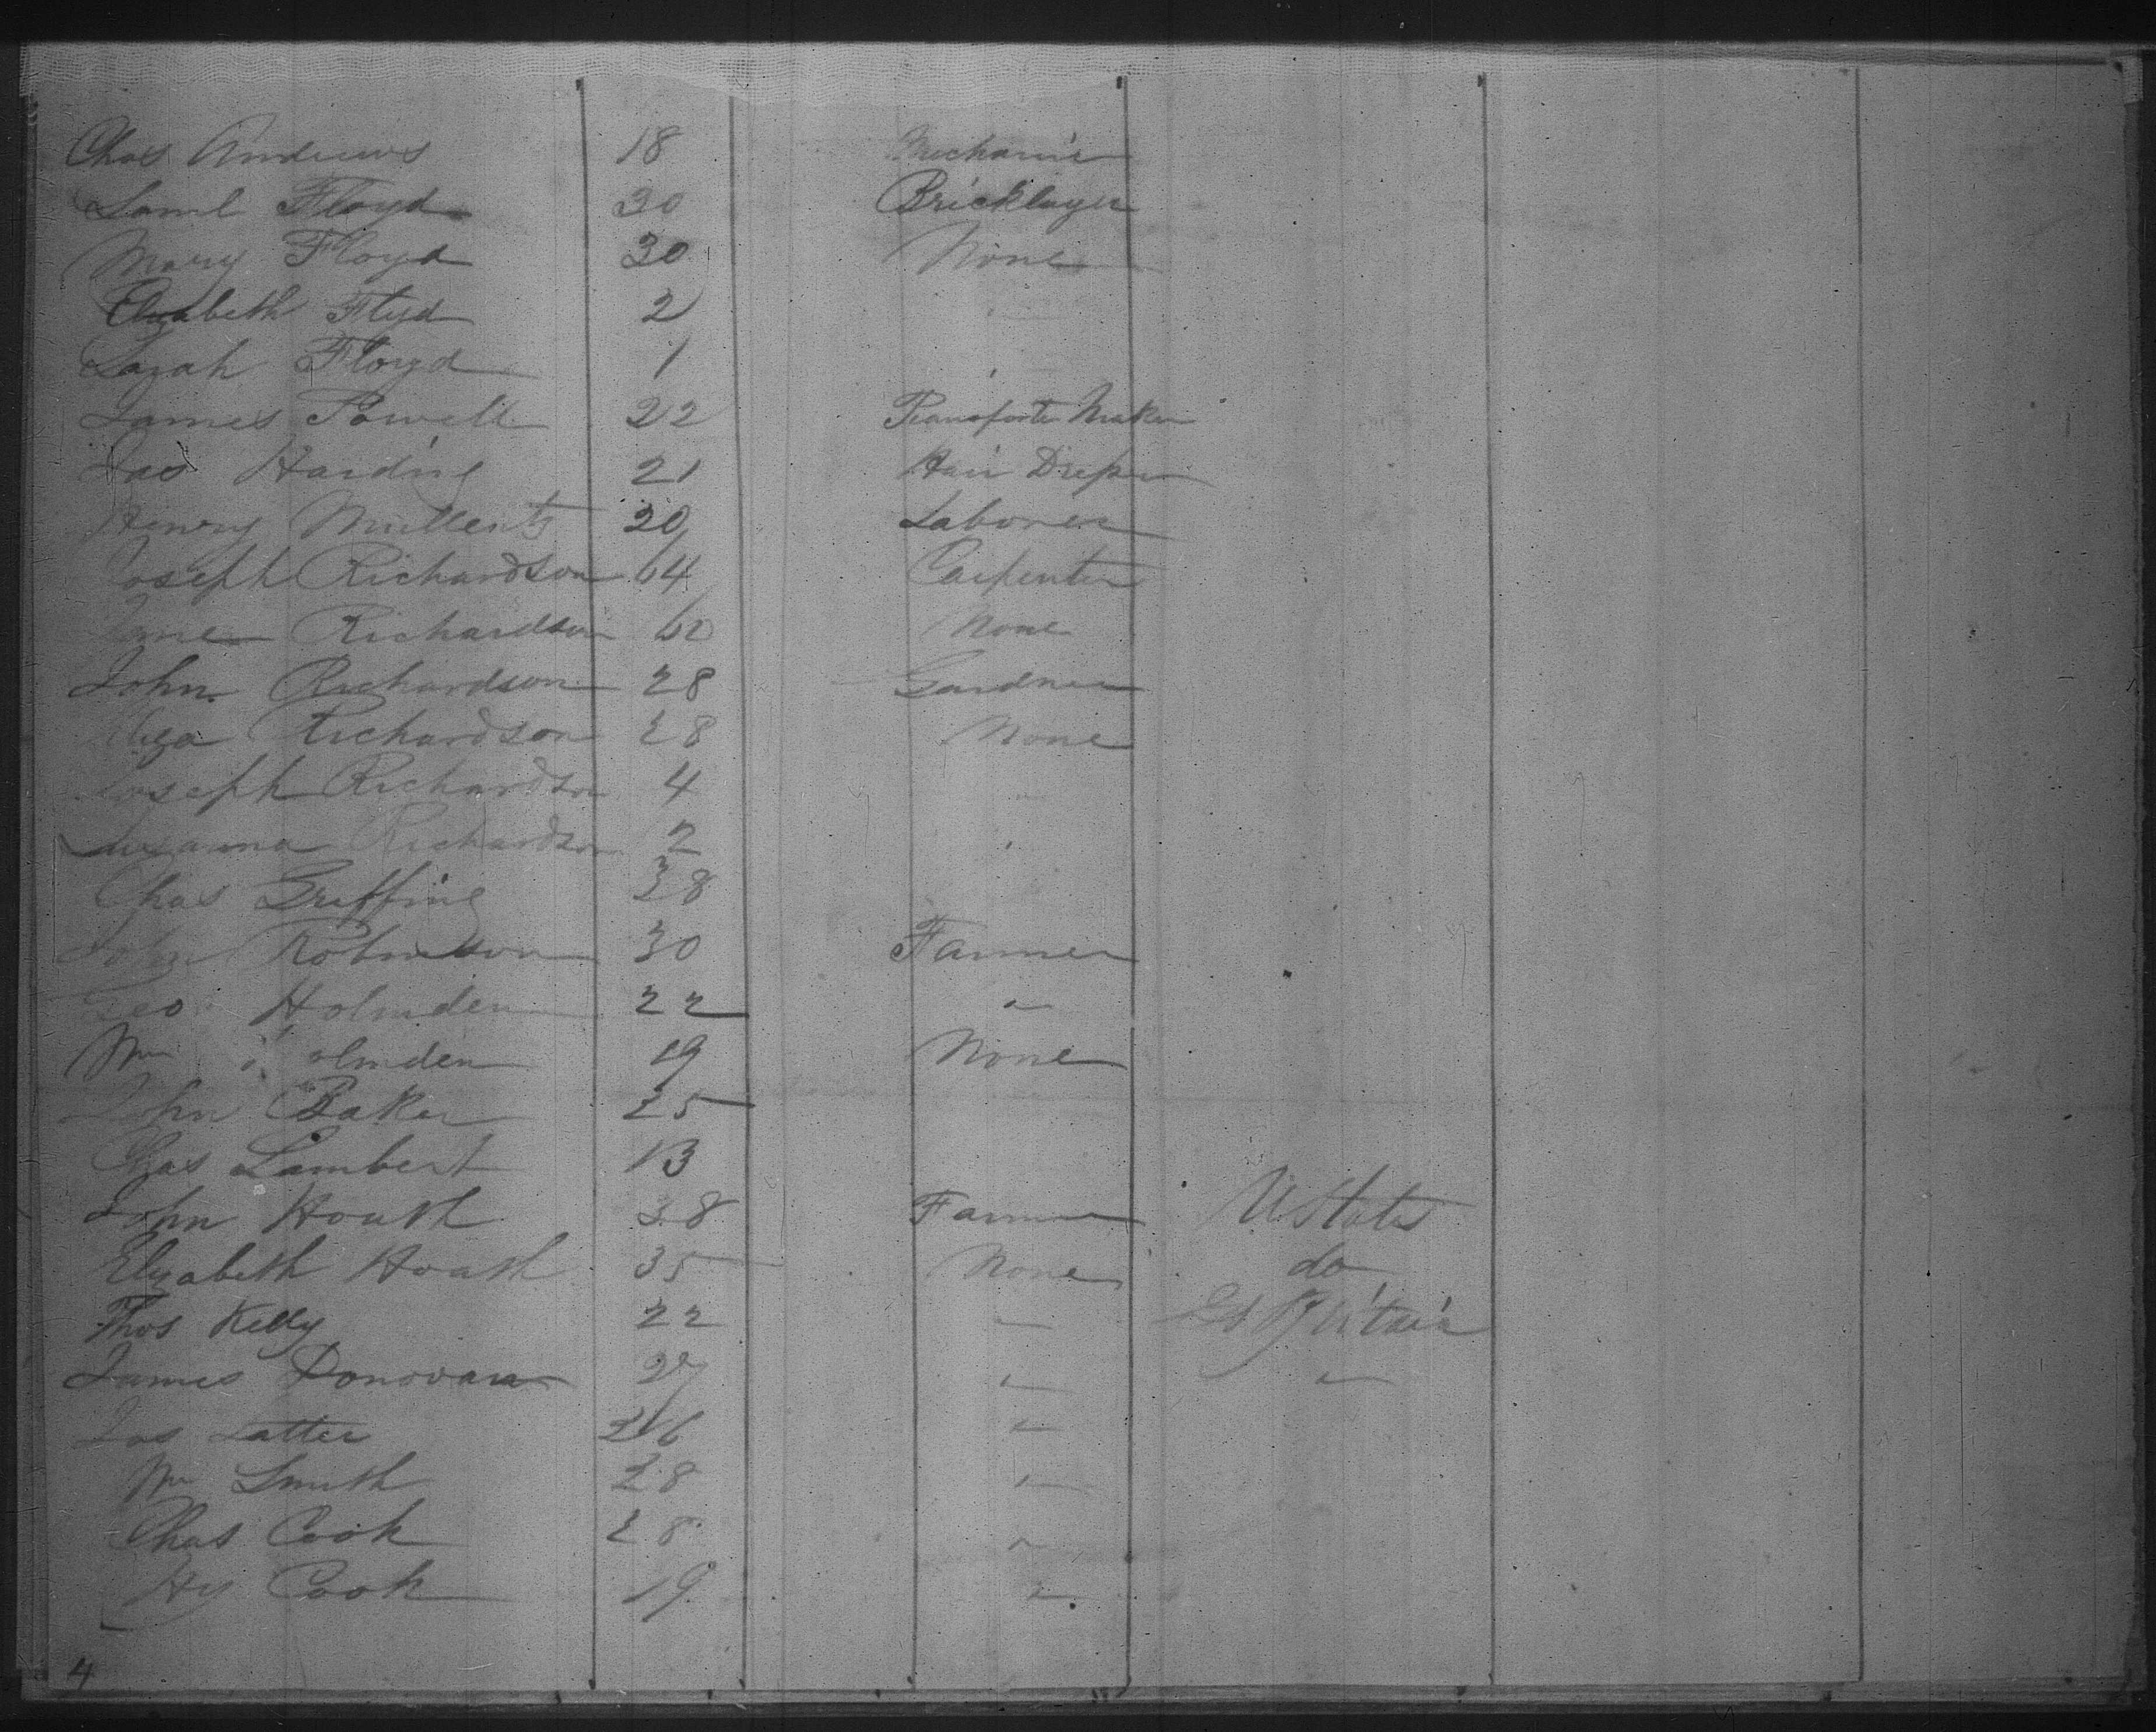 Chas Andrews 18 Mechanic
Saml Floyd 30 Bricklayer
Mary Floyd 30 None
Elizabeth Flyd 2 "
Sarah Floyd 1 "
James Powell 22 Pianoforte Maker
Jas Harding 21 Hair Dresser
Henry 20 Laborer
Joseph Richardson 64 Carpenter
Jane Richardson 60 None
John Richardson 28 Gardner
Eliza Richardson 28 None
Joseph Richardson 4 "
Susanna Richardson 2 "
Chas Griffing 38 "
John Robinson 30 Farmer
Geo Holmden 22 "
Wm Holmden 19 None
John Baker 25
Chas Lambert 13
John 38 Farmer U States
Elizabeth 35 None do
Thos Kelly 22 " Gt Britain
James Donovan 27 " "
Jas Latter 26 "
Wm Smith 28 "
Chas Cook 28 "
Hy Cook 19 "
4